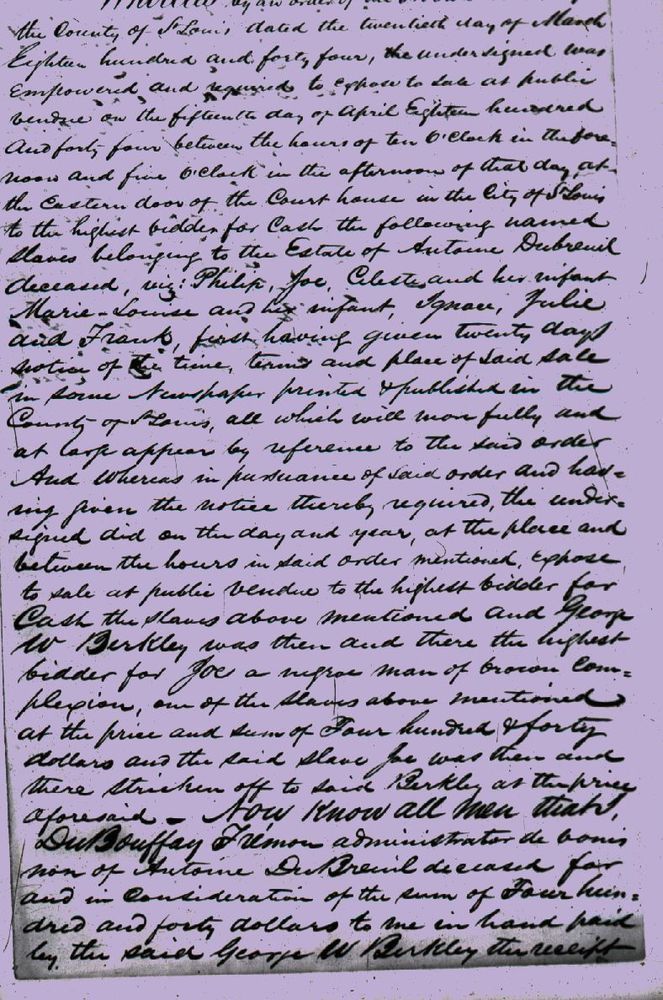 Whereas by an order of the
the County of St Louis dated the twentieth day of March
Eighteen hundred and forty four, the undersigned was
empowered and required to expose to sale at public
vendue on the fifteenth day of April Eighteen hundred
and forty four between the hours of ten O'Clock in the fore-
noon and five O'Clock in the afternoon of that day, at
the Eastern door of the Court house in the City of St Louis
to the highest bidder for Cash the following named
slaves belonging to the Estate of Antoine Dubreuil
deceased, viz: Philip, Joe, Celeste and her infant
Marie-Louise and her infant, Ignace, Julie
and Frank, first having given twenty days
notice of the time, terms and place of said sale
in some Newspaper printed & published in the
County of St Louis, all which will more fully and
at large appear by reference to the said order
And whereas in pursuance of said order and hav=
ing given the notice thereby required, the under=
signed did on the day and year, at the place and
between the hours in said order mentioned, expose
to sale at public vendue to the highest bidder for
Cash the slaves above mentioned and George
W Berkley was then and there the highest
bidder for Joe a negroe man of brown com=
plexion, one of the slaves above mentioned
at the price and sum of Four hundred & forty
dollars and the said slave Joe was then and
there stricken off to said Berkley at the price
aforesaid - Now Know all men that I,
DuBouffay Frémon administrator de bonis
non of Antoine DuBreuil deceased for
and in consideration of the sum of Four hun=
dred and forty dollars to me in hand paid
by the said George W Berkley the receipt